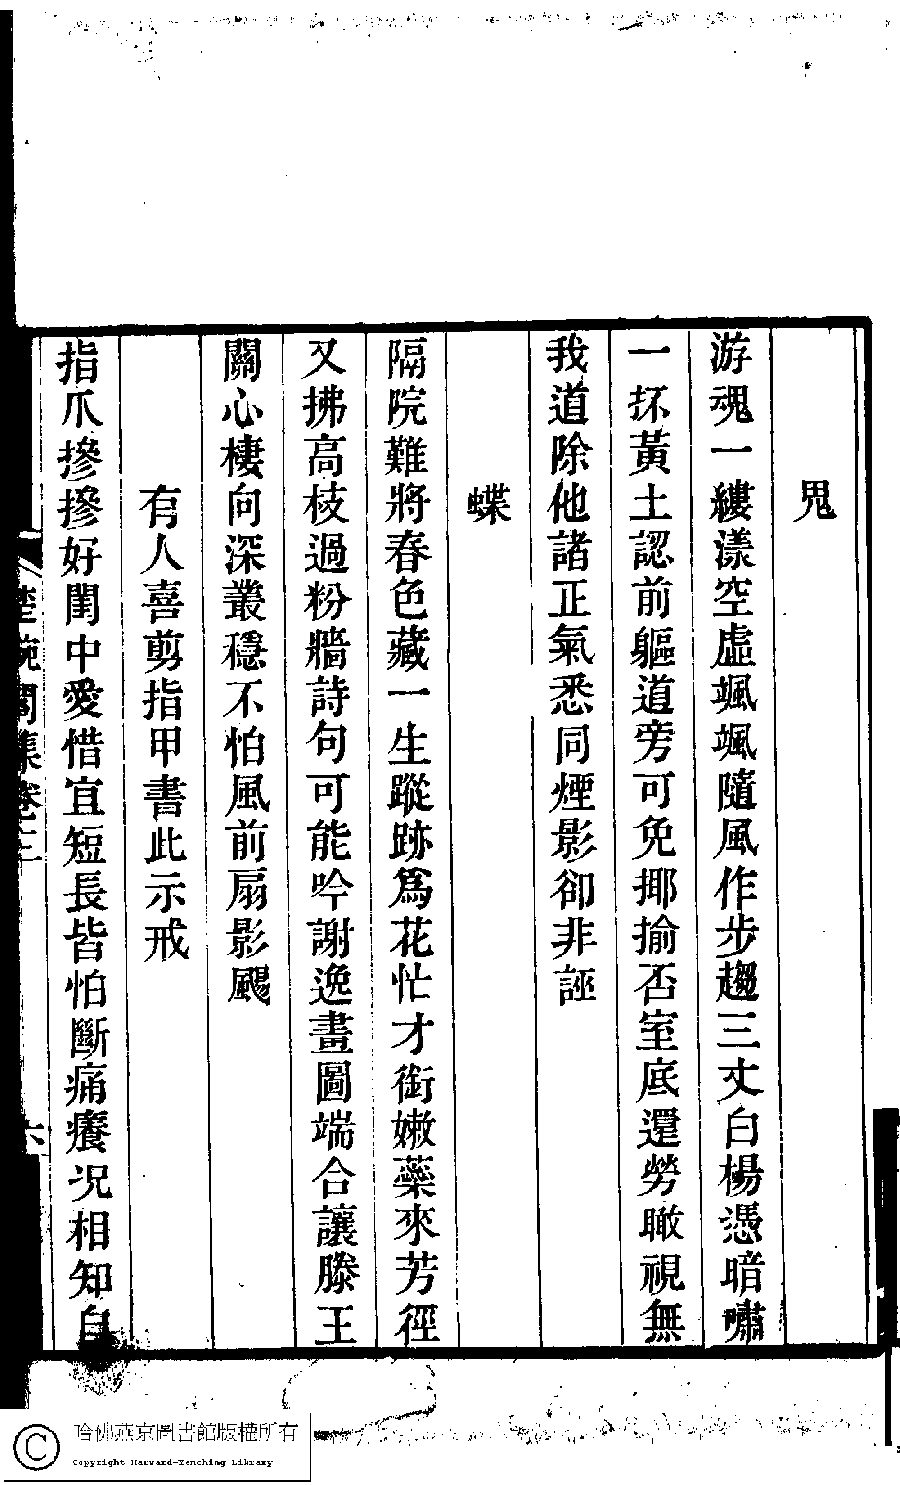 鬼
游魂一縷漾空虛颯颯隨風作步趨三丈白楊憑暗嘯
一抔黃土認前軀道旁可免揶揄否室底還勞瞰視無
我道除他諸正氣悉同煙影卻非誣
蝶
隔院難將春色藏一生蹤跡爲花忙才銜嫩藥來芳徑
又拂高枝過粉牆詩句可能吟謝逸畫圖端合讓滕王
關心棲向深叢穩不怕風前扇影颺
有人喜剪指甲書此示戒
指爪摻摻好閨中愛惜宜短長皆怕斷痛癢況相知自
集卷三
六
哈佛燕京圖書館版權所有
Copyright Harvard-Yenching Library